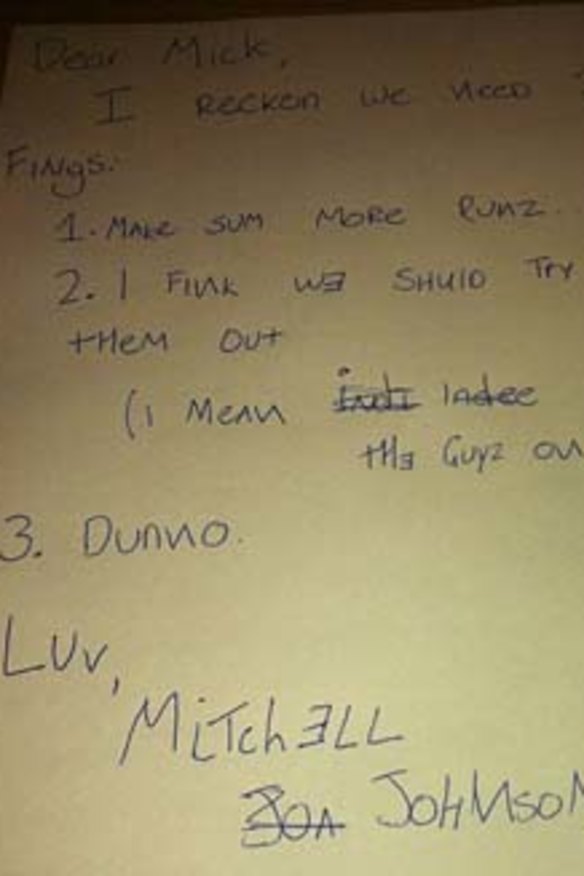 Dear Mick,
I RECKON WE NEED
FINgS.
1. MAKE SUM MORE RUNZ.
2. I FINK WE SHULD TRY
tHEM OUt
(I MEAN INdEE
tHE GUYZ
3. DUNNO.
LUV,
MiTChELL
JOHNSON